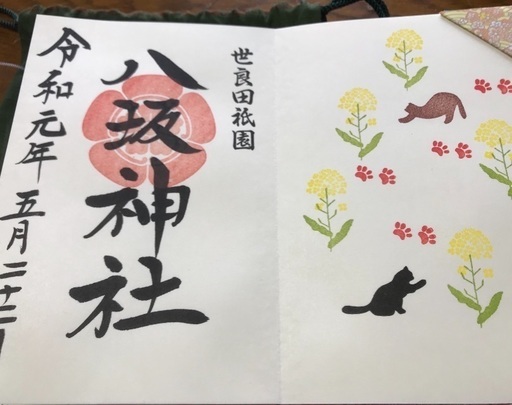 世良田祇園
八坂神社
令和元年 五月二十二